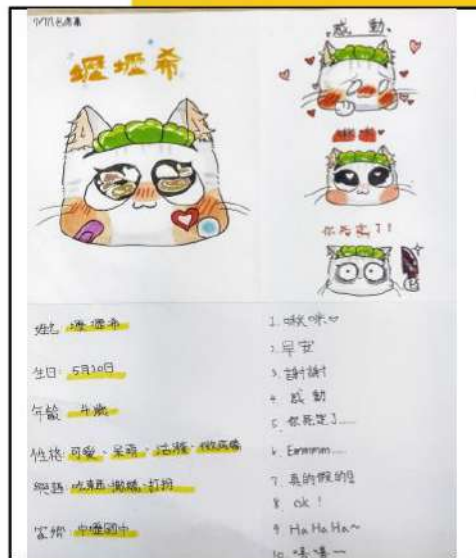 壢壢希
感動
你死定了!
姓名: 壢壢希
生日: 5月30日
年齡: 4歲
性格: 可愛、呆萌、活潑、微腐蠟
中壢國中
1. 啾咪♡
2. 早安
3. 謝謝
4. 感動
5. 你死定了.....
6. Emmmm....
7. 真的假的!!
8. ok !
9. Ha Ha Ha~